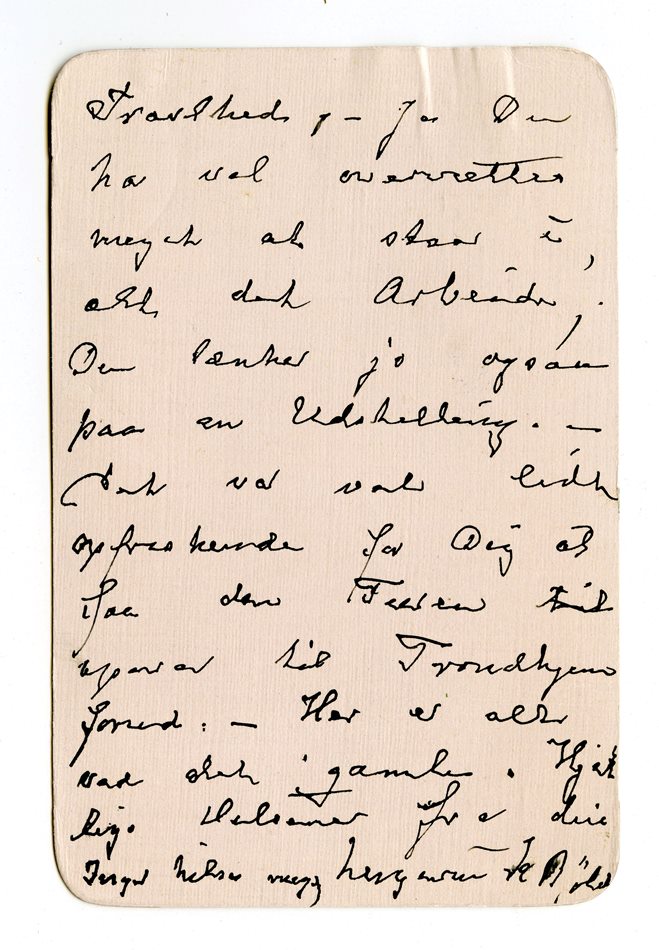 Travlhed, – Ja Du
har vel overvættes
meget at staa i,
alt det Arbeide,
Du tænker jo ogsaa
paa en Udstilling. –
Det var vel lidt
opfriskende for Dig at
faa den Turen
opover til Trondhjem
forud. – Her er alt
ved det gamle. Hjært
lige Hilsener fra din
Inger hilser meget